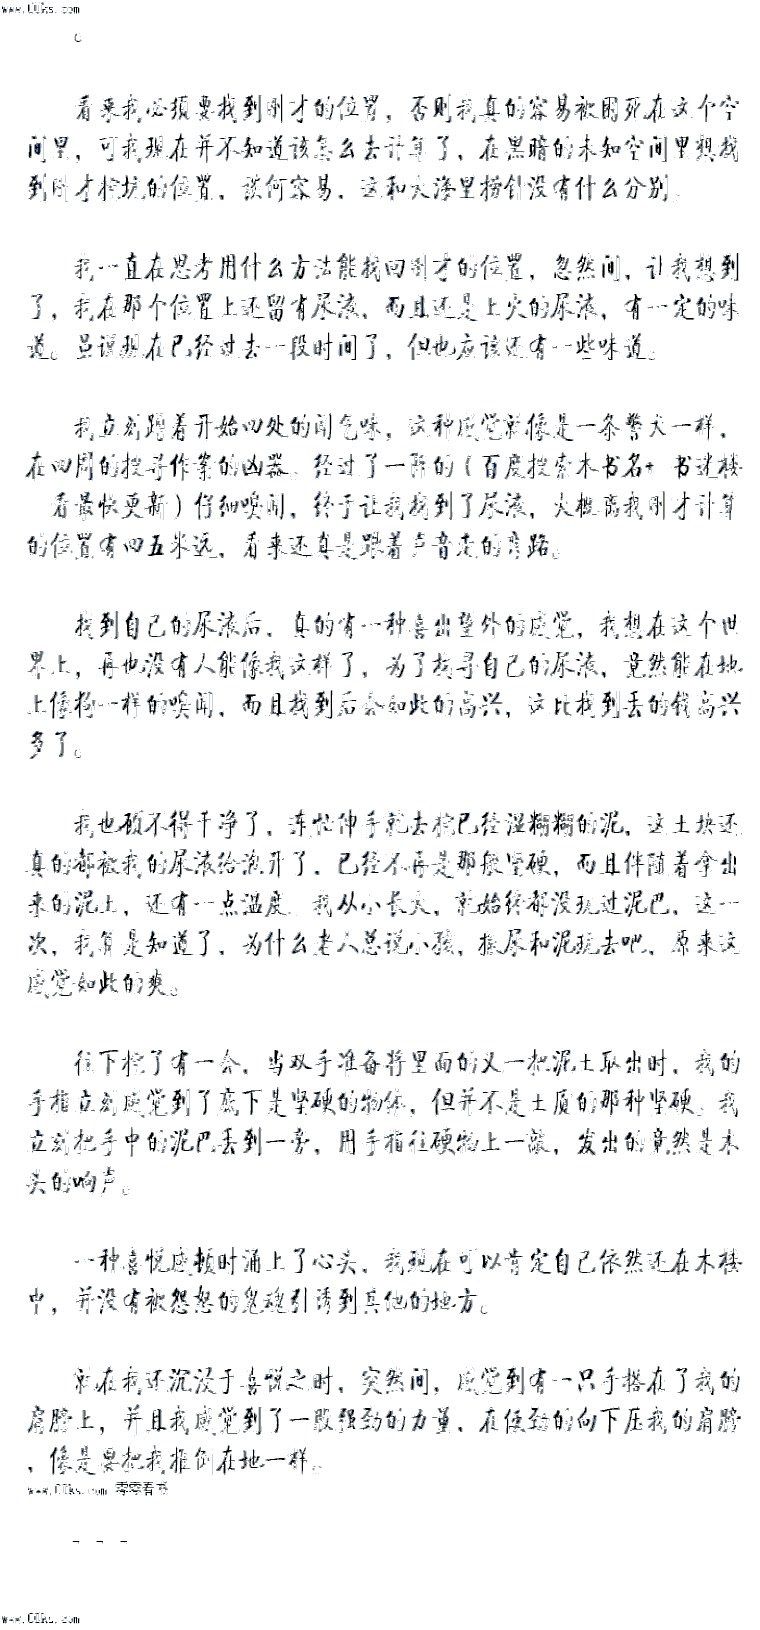 www.00ks.com
。
看来我必须要找到刚才的位置，否则我真的容易被困死在这个空
间里，可我现在并不知道该怎么去计算了，在黑暗的未知空间里想找
到刚才挖坑的位置，谈何容易，这和大海里捞针没有什么分别。
我一直在思考用什么方法能找回刚才的位置，忽然间，让我想到
了，我在那个位置上还留有尿液，而且还是上火的尿液，有一定的味
道。虽说现在已经过去一段时间了，但也应该还有一些味道。
我立刻蹲着开始四处的闻气味，这种感觉就像是一条警犬一样，
在四周的搜寻作案的凶器。经过了一阵的（百度搜索本书名+ 书迷楼
看最快更新）仔细嗅闻，终于让我找到了尿液，大概离我刚才计算
的位置有四五米远，看来还真是跟着声音走的弯路。
找到自己的尿液后，真的有一种喜出望外的感觉，我想在这个世
界上，再也没有人能像我这样了，为了找寻自己的尿液，竟然能在地
上像狗一样的嗅闻，而且找到后会如此的高兴，这比找到丢的钱高兴
多了。
我也顾不得干净了，连忙伸手就去挖已经湿糊糊的泥，这土块还
真的都被我的尿液给泡开了，已经不再是那般坚硬，而且伴随着拿出
来的泥土，还有一点温度。我从小长大，就始终都没玩过泥巴，这一
次，我算是知道了，为什么老人总说小孩，撒尿和泥玩去吧，原来这
感觉如此的爽。
往下挖了有一会，当双手准备将里面的又一把泥土取出时，我的
手指立刻感觉到了底下是坚硬的物体，但并不是土质的那种坚硬。我
立刻把手中的泥巴丢到一旁，用手指往硬物上一敲，发出的竟然是木
头的响声。
一种喜悦感顿时涌上了心头，我现在可以肯定自己依然还在木楼
中，并没有被怨怒的鬼魂引诱到其他的地方。
就在我还沉浸于喜悦之时，突然间，感觉到有一只手搭在了我的
肩膀上，并且我感觉到了一股强劲的力量，在使劲的向下压我的肩膀
，像是要把我推倒在地一样。
www.00ks.com 零零看书
- - -
www.00ks.com